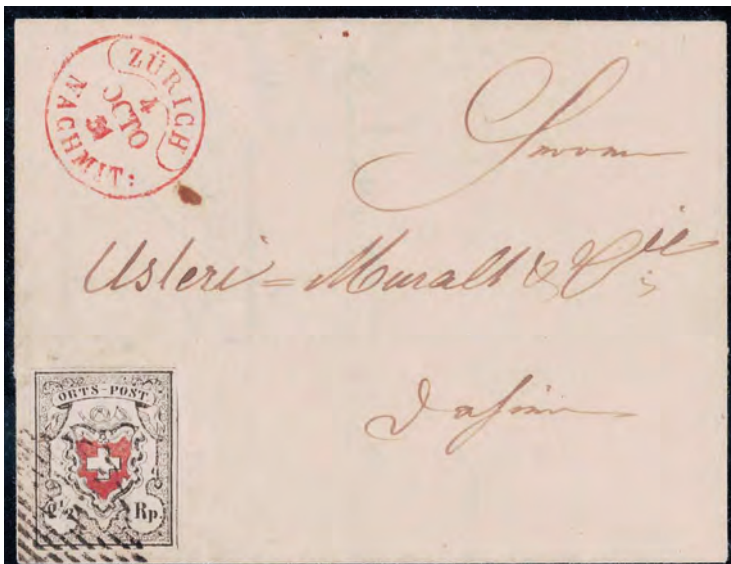 ZÜRICH
4
OCTO
51
NACHMIT:
Herren
Usteri = Muralt & Cie
dahier
ORTS-POST
2 1/2 Rp.